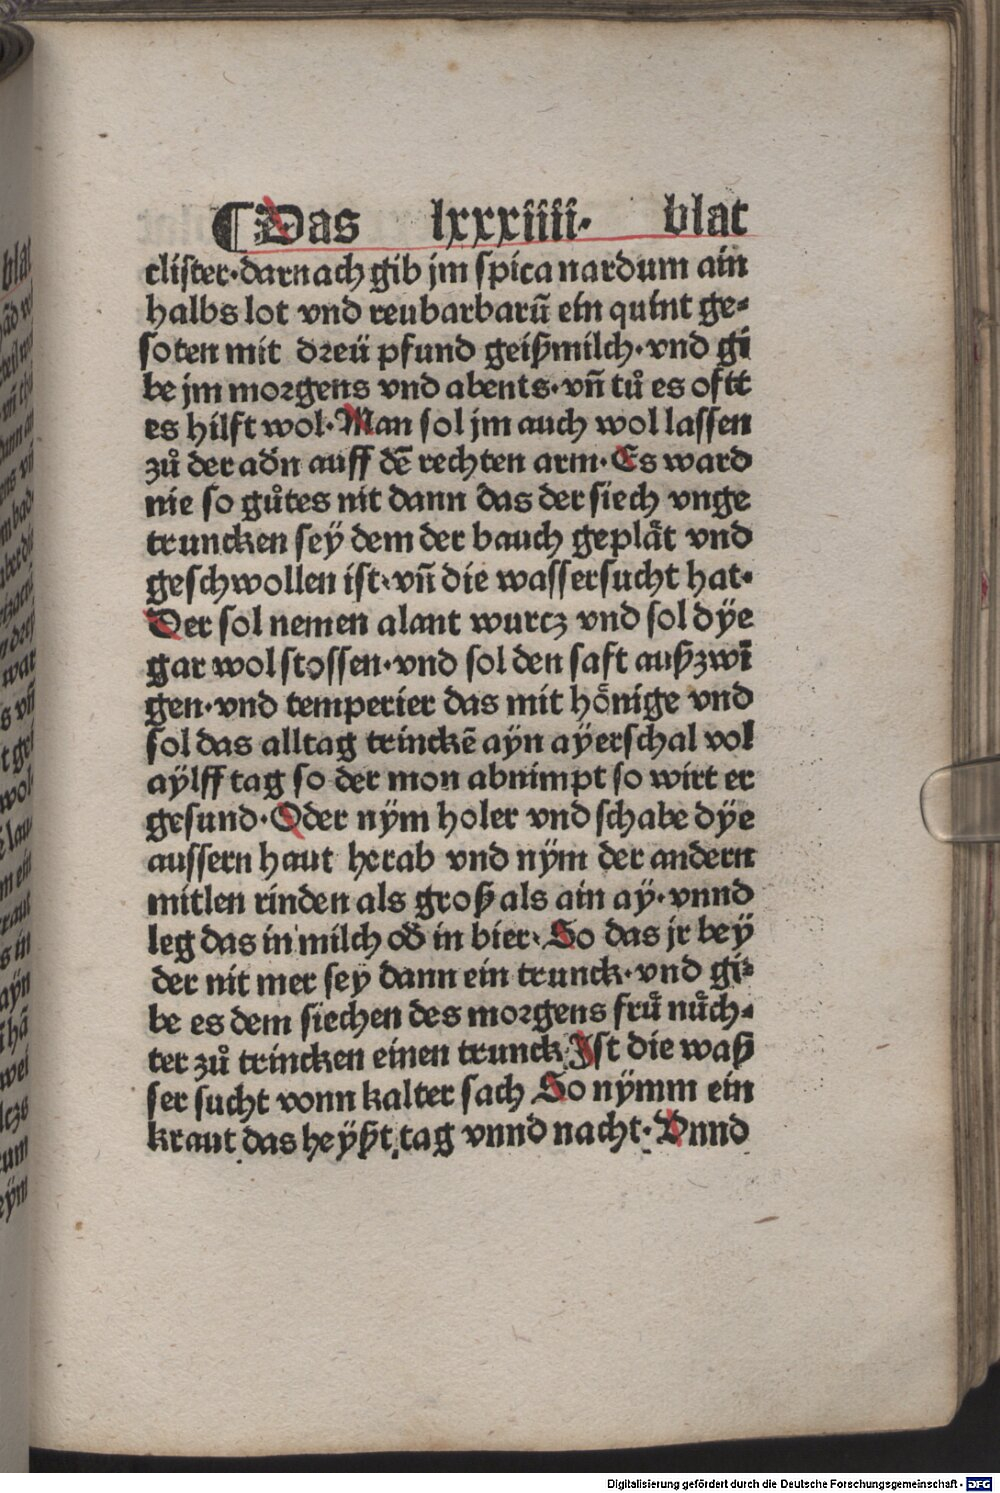 ¶Das lxxxiiii· blat
clister·darnach gib jm spica nardum ain
halbs lot vnd reubarbarū ein quint ge⸗
soten mit dreü pfund geißmilch·vnd gi
be jm morgens vnd abents·vn̄ tů es oftt
es hilft wol·Man sol jm auch wol lassen
zů der adn̄ auff dē rechten arm·Es ward
nie so gůtes nit dann das der siech vnge
truncken seÿ dem der bauch geplåt vnd
geschwollen ist·vn̄ die wassersucht hat·
Der sol nemen alant wurcz vnd sol dÿe
gar wol stossen·vnd sol den saft außzwī
gen·vnd temperier das mit hönige vnd
sol das alltag trinckē aÿn aÿerschal vol
aÿlff tag so der mon abnimpt so wirt er
gesund·Oder nÿm holer vnd schabe dÿe
aussern haut herab vnd nÿm der andern
mitlen rinden als groß als ain aÿ·vnnd
leg das in milch od̄ in bier·So das jr beÿ
der nit mer seÿ dann ein trunck·vnd gi⸗
be es dem siechen des morgens frů nůch⸗
ter zů trincken einen trunck Ist die waß
ser sucht vonn kalter sach So nÿmm ein
kraut das heÿßt tag vnnd nacht·Vnnd
Digitalisierung gefördert durch die Deutsche Forschungsgemeinschaft - DFG